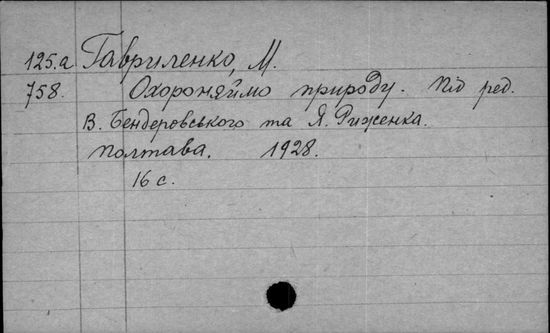 125.а Гавриленко, М.
758. Охороняймо природу. Під ред.
В. Бендеровського та Я. Риженка.
Полтава. 1928.
16 с.